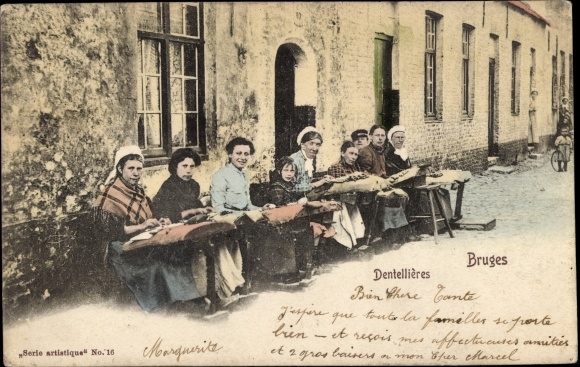 Dentellières
Bruges
Bien Chere Tante
J'espère que toute la familles se porte
bien – et reçois, mes affectueuses amitiés
et 2 gros baisers a mon Cher Marcel
Marguerite
„Serie artistique" No. 16